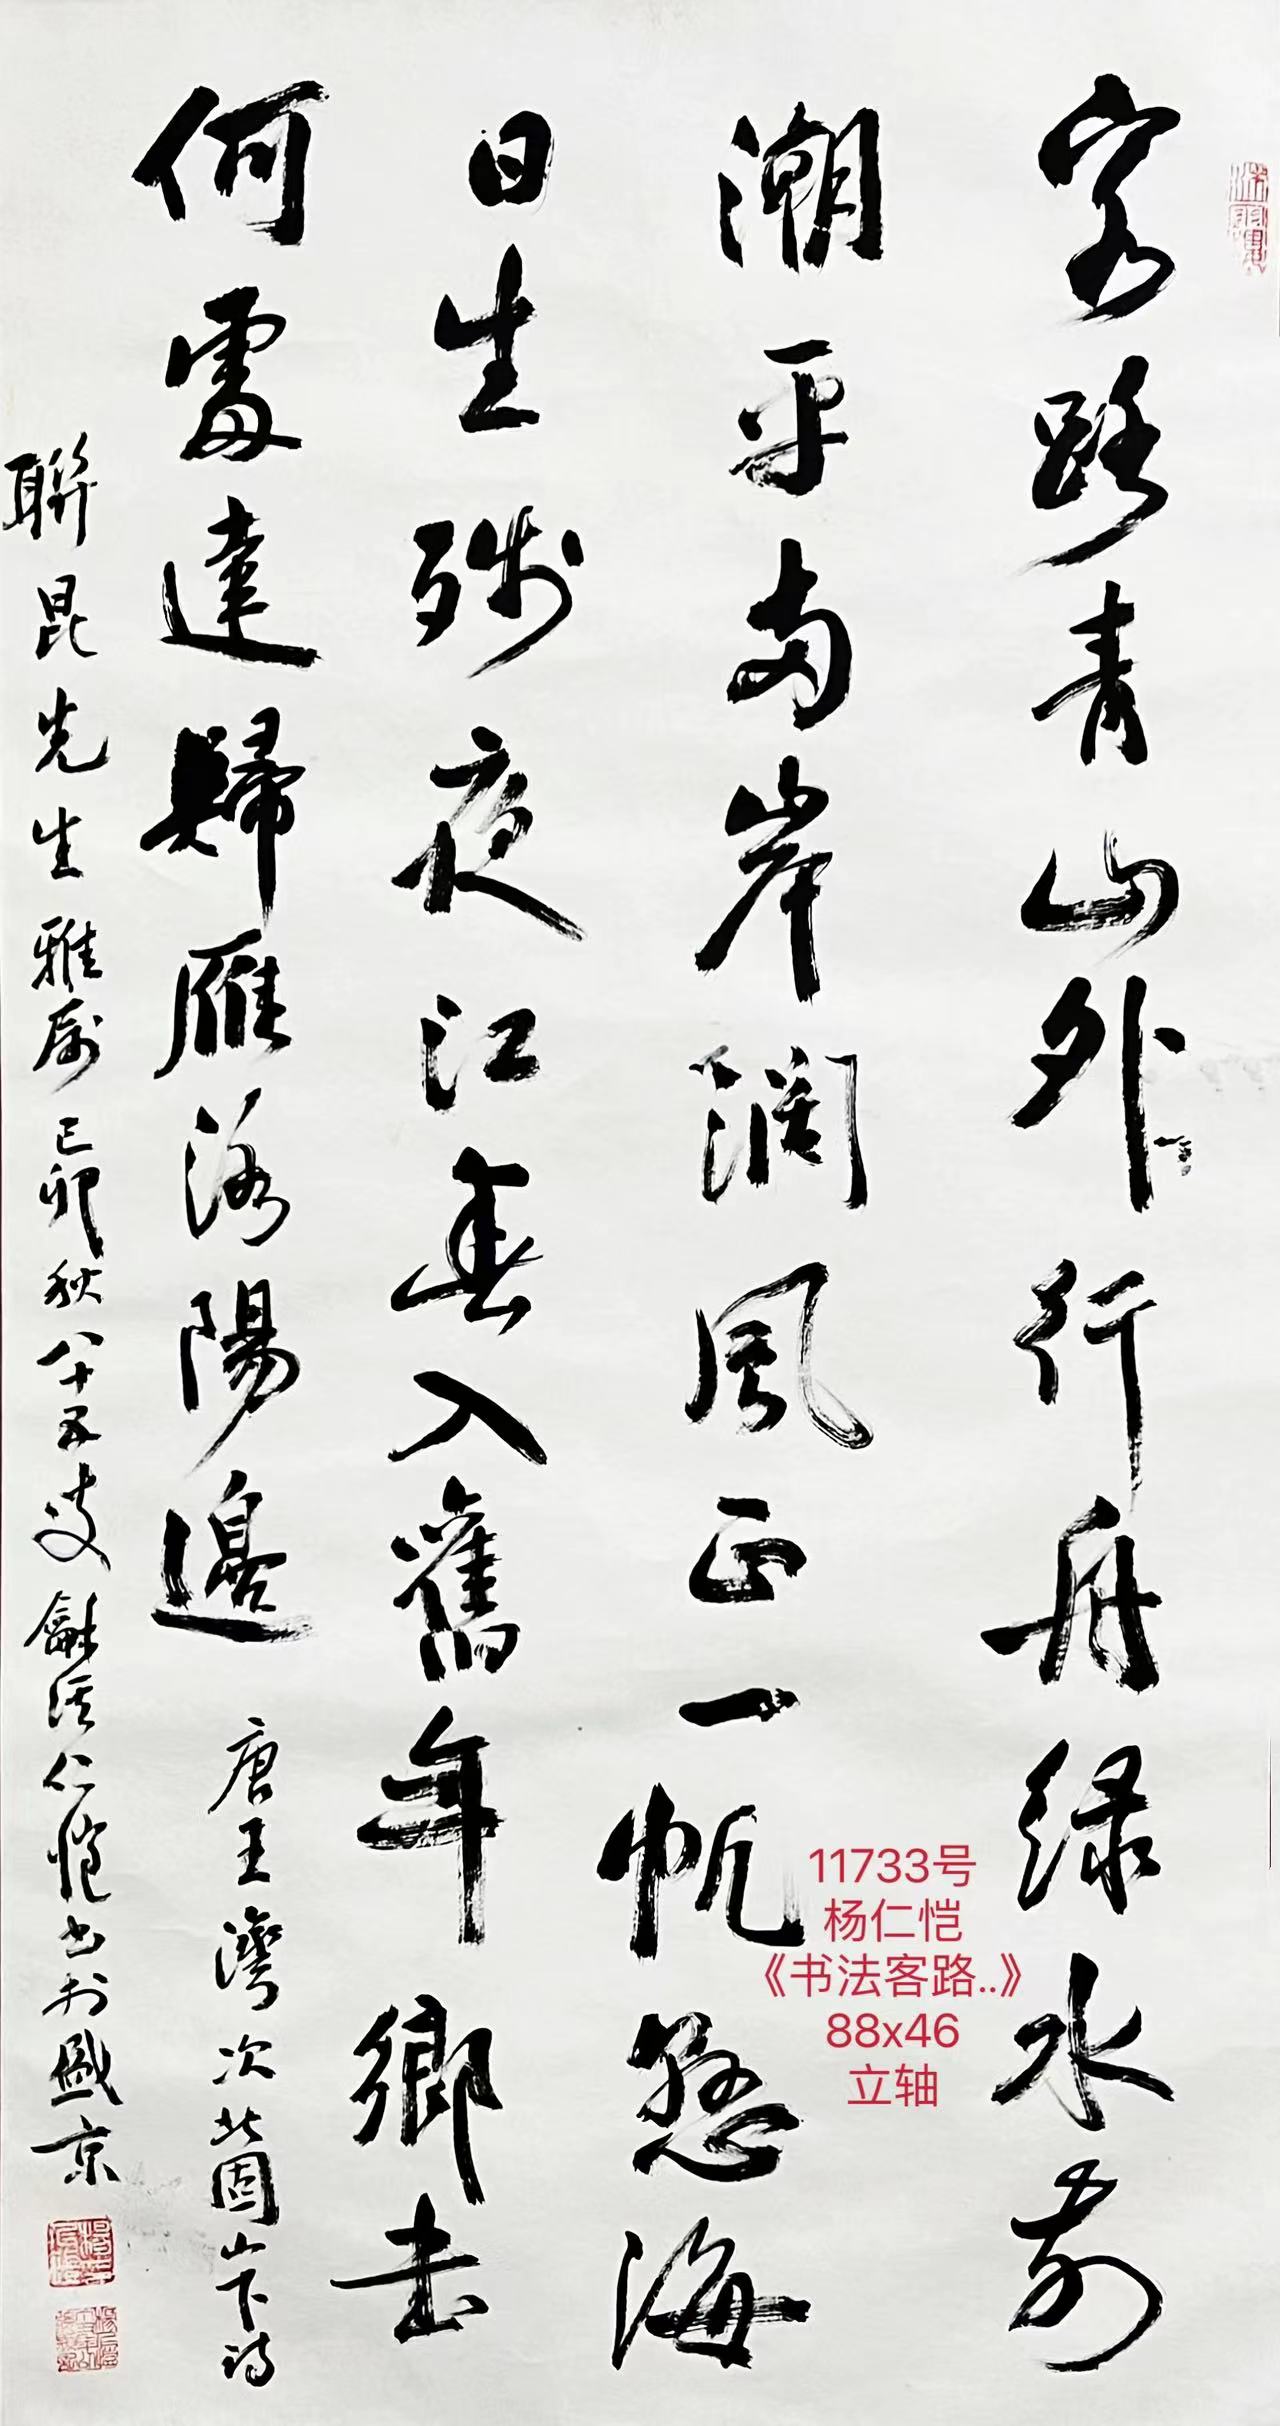 客路青山外行舟绿水前
潮平两岸濶風正一帆懸海
日生残夜江春入舊年鄉書
何處達歸雁洛陽邊 唐王灣次北固山下詩
聯昆先生雅屬己卯秋八十五叟龢溪仁愷書於盛京
11733号
杨仁恺
《书法客路..》
88x46
立轴